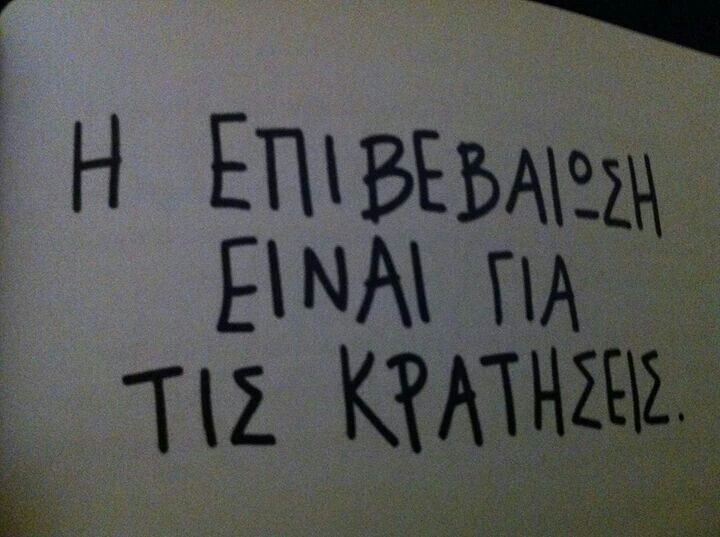 Η ΕΠΙΒΕΒΑΙΩΣΗ
ΕΙΝΑΙ ΓΙΑ
ΤΙΣ ΚΡΑΤΗΣΕΙΣ.